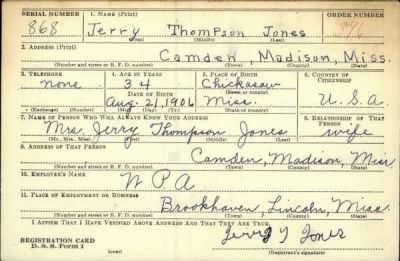 SERIAL NUMBER 1. NAME (Print) ORDER NUMBER
868 Jerry Thompson Jones
(First) (Middle) (Last)
2. ADDRESS (Print)
Camden, Madison, Miss.
(Number and street or R. F. D. number) (Town) (County) (State)
3. TELEPHONE 4. AGE IN YEARS 5. PLACE OF BIRTH 6. COUNTRY OF CITIZENSHIP
none. 34 Chickasaw
DATE OF BIRTH (Town or county)
Aug. 21, 1906 Miss. U.S.A.
(Exchange) (Number) (Mo.) (Day) (Yr.) (State or country)
7. NAME OF PERSON WHO WILL ALWAYS KNOW YOUR ADDRESS 8. RELATIONSHIP OF THAT PERSON
Mrs. Jerry Thompson Jones wife
(Mr., Mrs., Miss) (First) (Middle) (Last)
9. ADDRESS OF THAT PERSON
Camden, Madison, Miss
(Number and street or R. F. D. number) (Town) (County) (State)
10. EMPLOYER'S NAME
W P A
11. PLACE OF EMPLOYMENT OR BUSINESS
Brookhaven, Lincoln, Miss.
(Number and street or R. F. D. number) (Town) (County) (State)
I AFFIRM THAT I HAVE VERIFIED ABOVE ANSWERS AND THAT THEY ARE TRUE.
REGISTRATION CARD
D. S. S. Form 1
Jerry T Jones
(Registrant's signature)